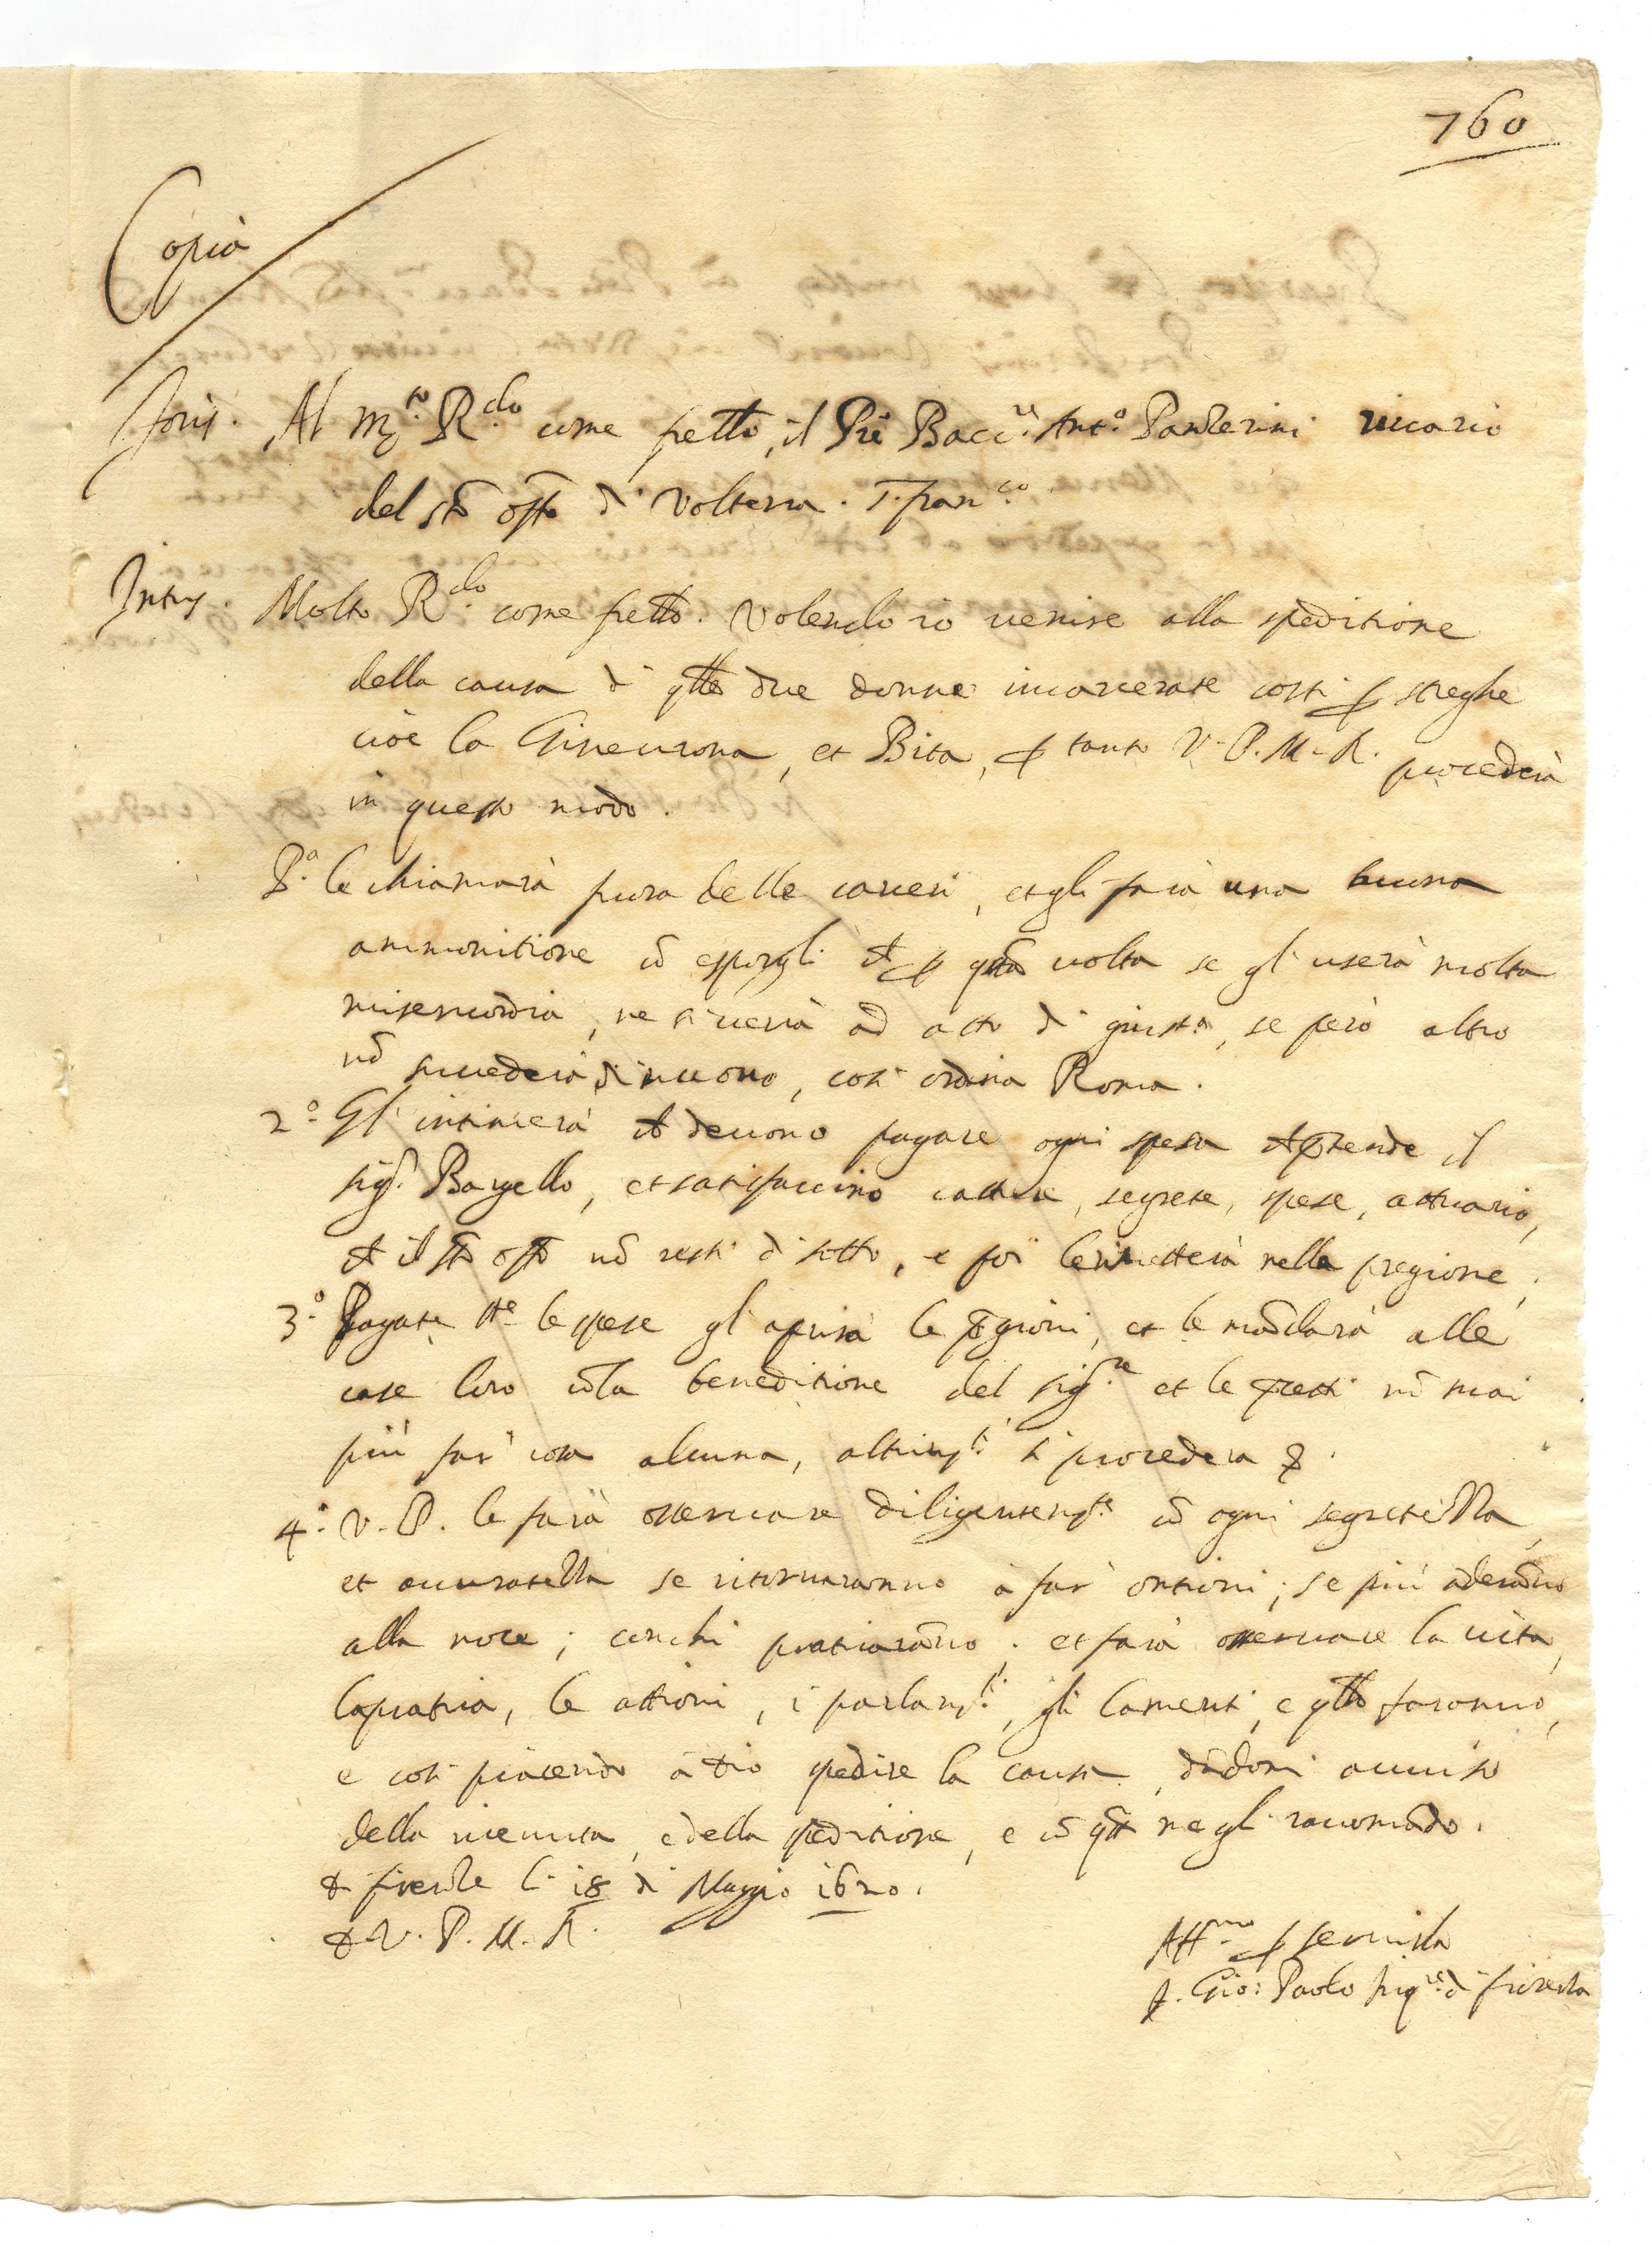 760
Copia
foris. Al m.to R.do come fretto, il Pre Bacc.re Ant.o Panterini vicario
del sto offo di Volterra. S. fran.co
Intus. Molto R.do come fretto. Volendo io venire alla speditione
della causa di qlle due donne incarcerate costi p streghe
cioè la Gineurona, et Bita, p tanto V. P. M. R. procederà
in questo modo.
P.a le chiamarà fuora delle carceri, et gli farà una buona
ammonitione cō esporgli ch p qsta volta se gl' userà molta
misericordia, ne si uerrà ad atto di giusta, se però altro
nō succederà di nuouo, cosi ordina Roma.
2.o Gl' intimerà ch deuono pagare ogni spesa ch ptende il
sigr. Bargello, et satisfaccino catture, segrete, spese, attuario,
ch il sto offo nō resti di sotto, e poi le rimetterà nella pregione.
3.o Pagate tte le spese gl' aprirà le pgioni, et le mādarà alle
case loro cō la beneditione del sig.re et le pcetti nō mai
più far cosa alcuna, altrim.ti si procederà
4.o V. P. le farà osseruare diligentem.te cō ogni segretezza
et accuratezza se ritornaranno à far' ontioni; se più aderāno
alla noce; con chi praticarāno; et farà osseruare la uita,
la pratica, le attioni, i parlam.ti, gli lamenti, e qllo faranno,
e cosi piacendo à Dio spedire la causa, dādomi auuiso
della riceuuta, e della speditione, e cō qsto me gl' racomādo.
di firenze li 18 di Maggio 1620.
di V. P. M. R.
Aff.mo p seruirla
f. Gio: Paolo Inq.re di fiorenza